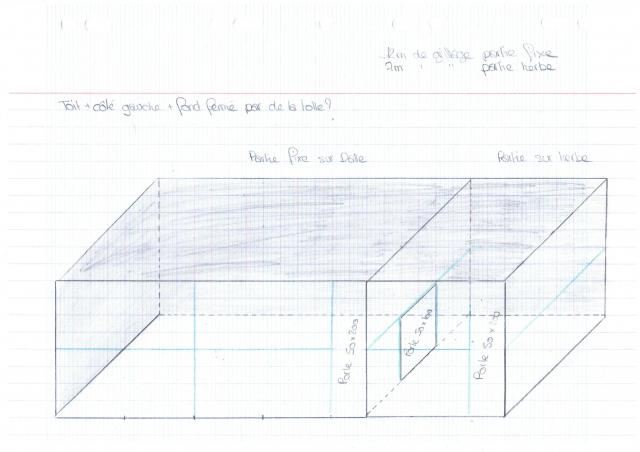 12m de grillage partie fixe
7m " " partie herbe
Toit + côté gauche + fond fermé par de la tolle?
Partie fixe sur Dalle
Partie sur herbe
Porte 50x200
Porte 50x100
Porte 50x